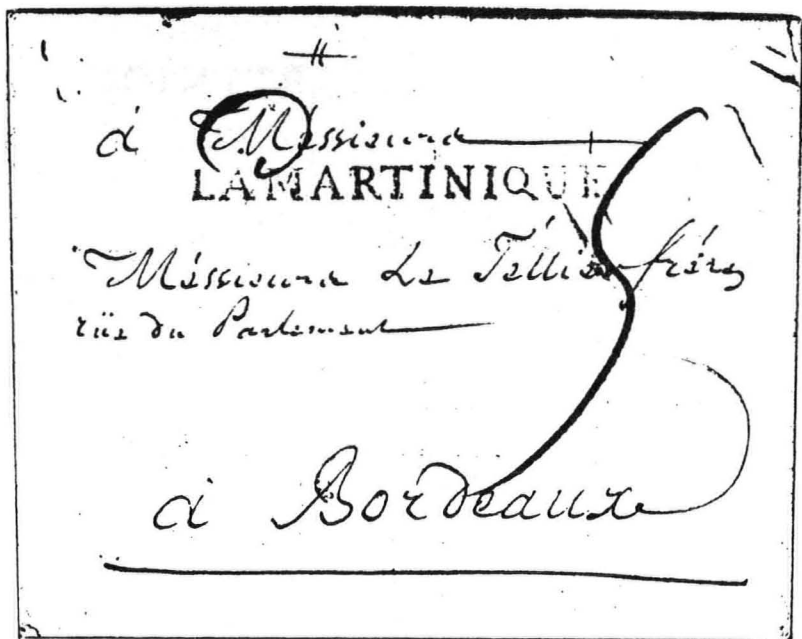 à Méssieurs
LA MARTINIQUE
Méssieurs Le Tellier frères
rüe du Parlement
à Bordeaux